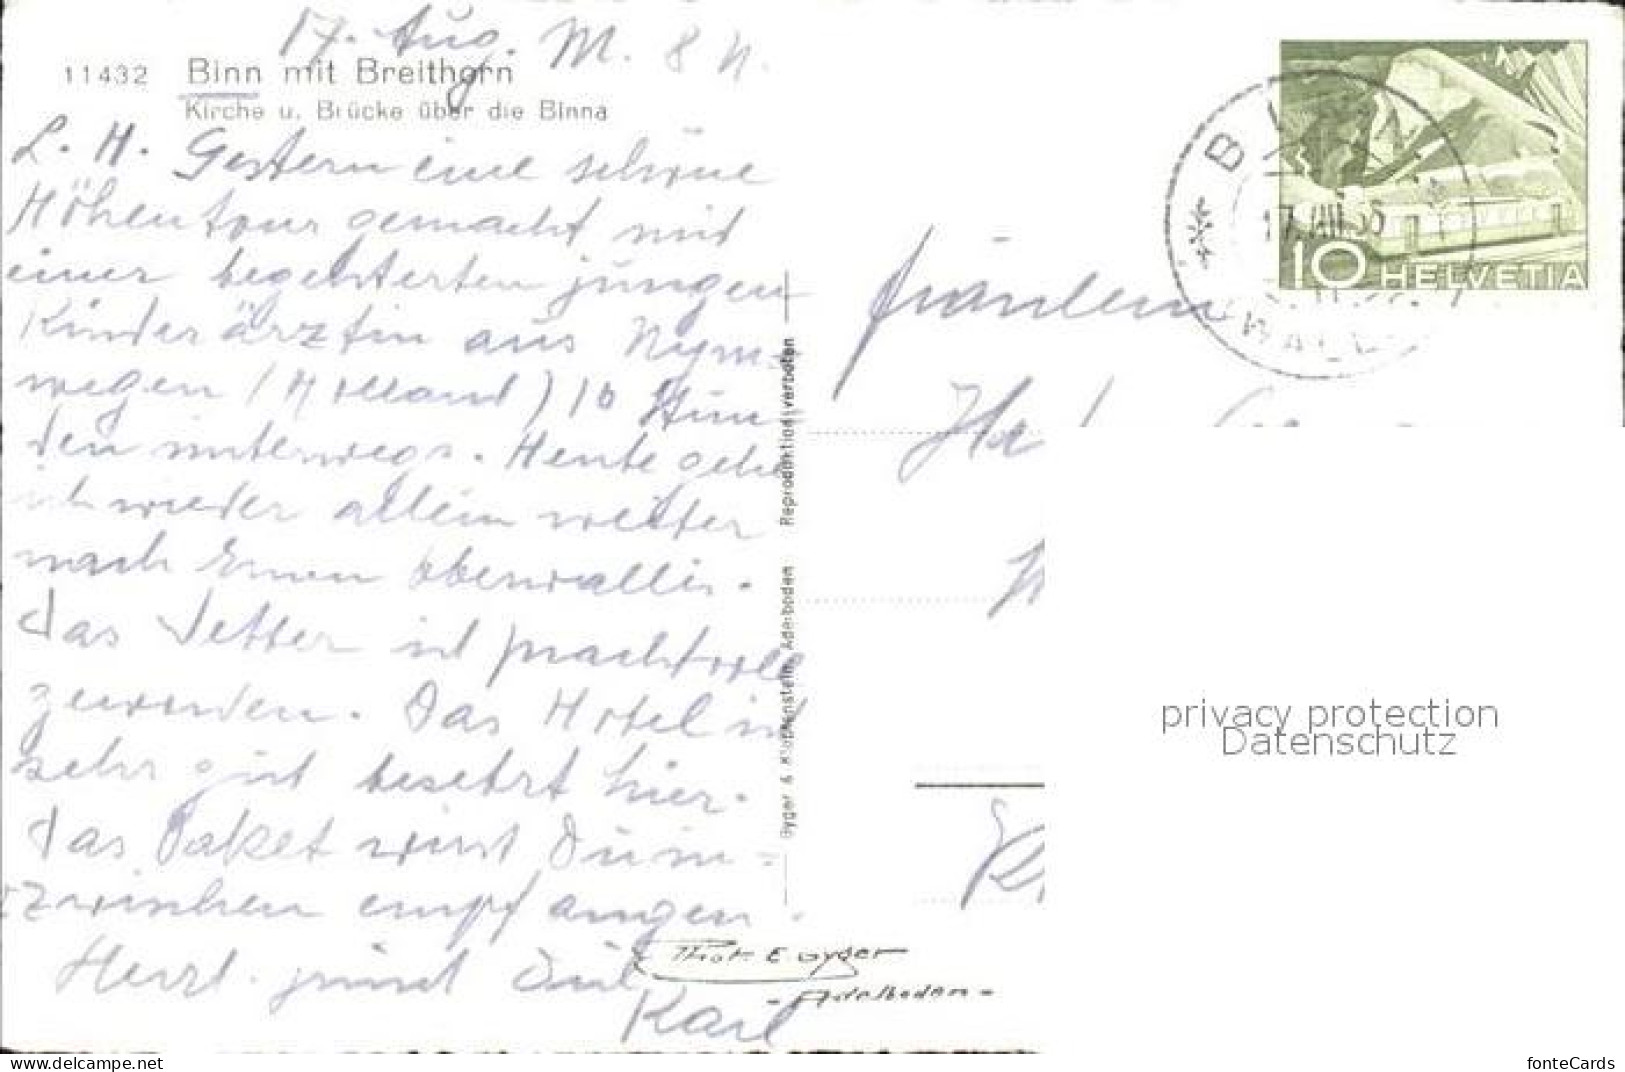 17. Aug. M. 8 N.
11432 Binn mit Breithorn
Kirche u. Brücke über die Binna
L. H. Gestern eine schöne
Höhentour gemacht mit
einer begeisterten jungen
Kinderärztin aus Nym-
wegen (Holland) 10 Stun-
den unterwegs. Heute gehe
ich wieder allein weiter
nach Ernen Oberwallis.
Das Wetter ist prachtvoll
geworden. Das Hotel ist
sehr gut besetzt hier.
Das Paket wirst Du in-
zwischen empfangen.
Herzl. grüsst Dich
Karl
Gyger & Klopfenstein, Adelboden Reproduktion verboten
Phot. E. Gyger
- Adelboden -
Fräulein
BINN
17.VIII.55
(WALLIS)
10 HELVETIA
privacy protection
Datenschutz
fonteCards